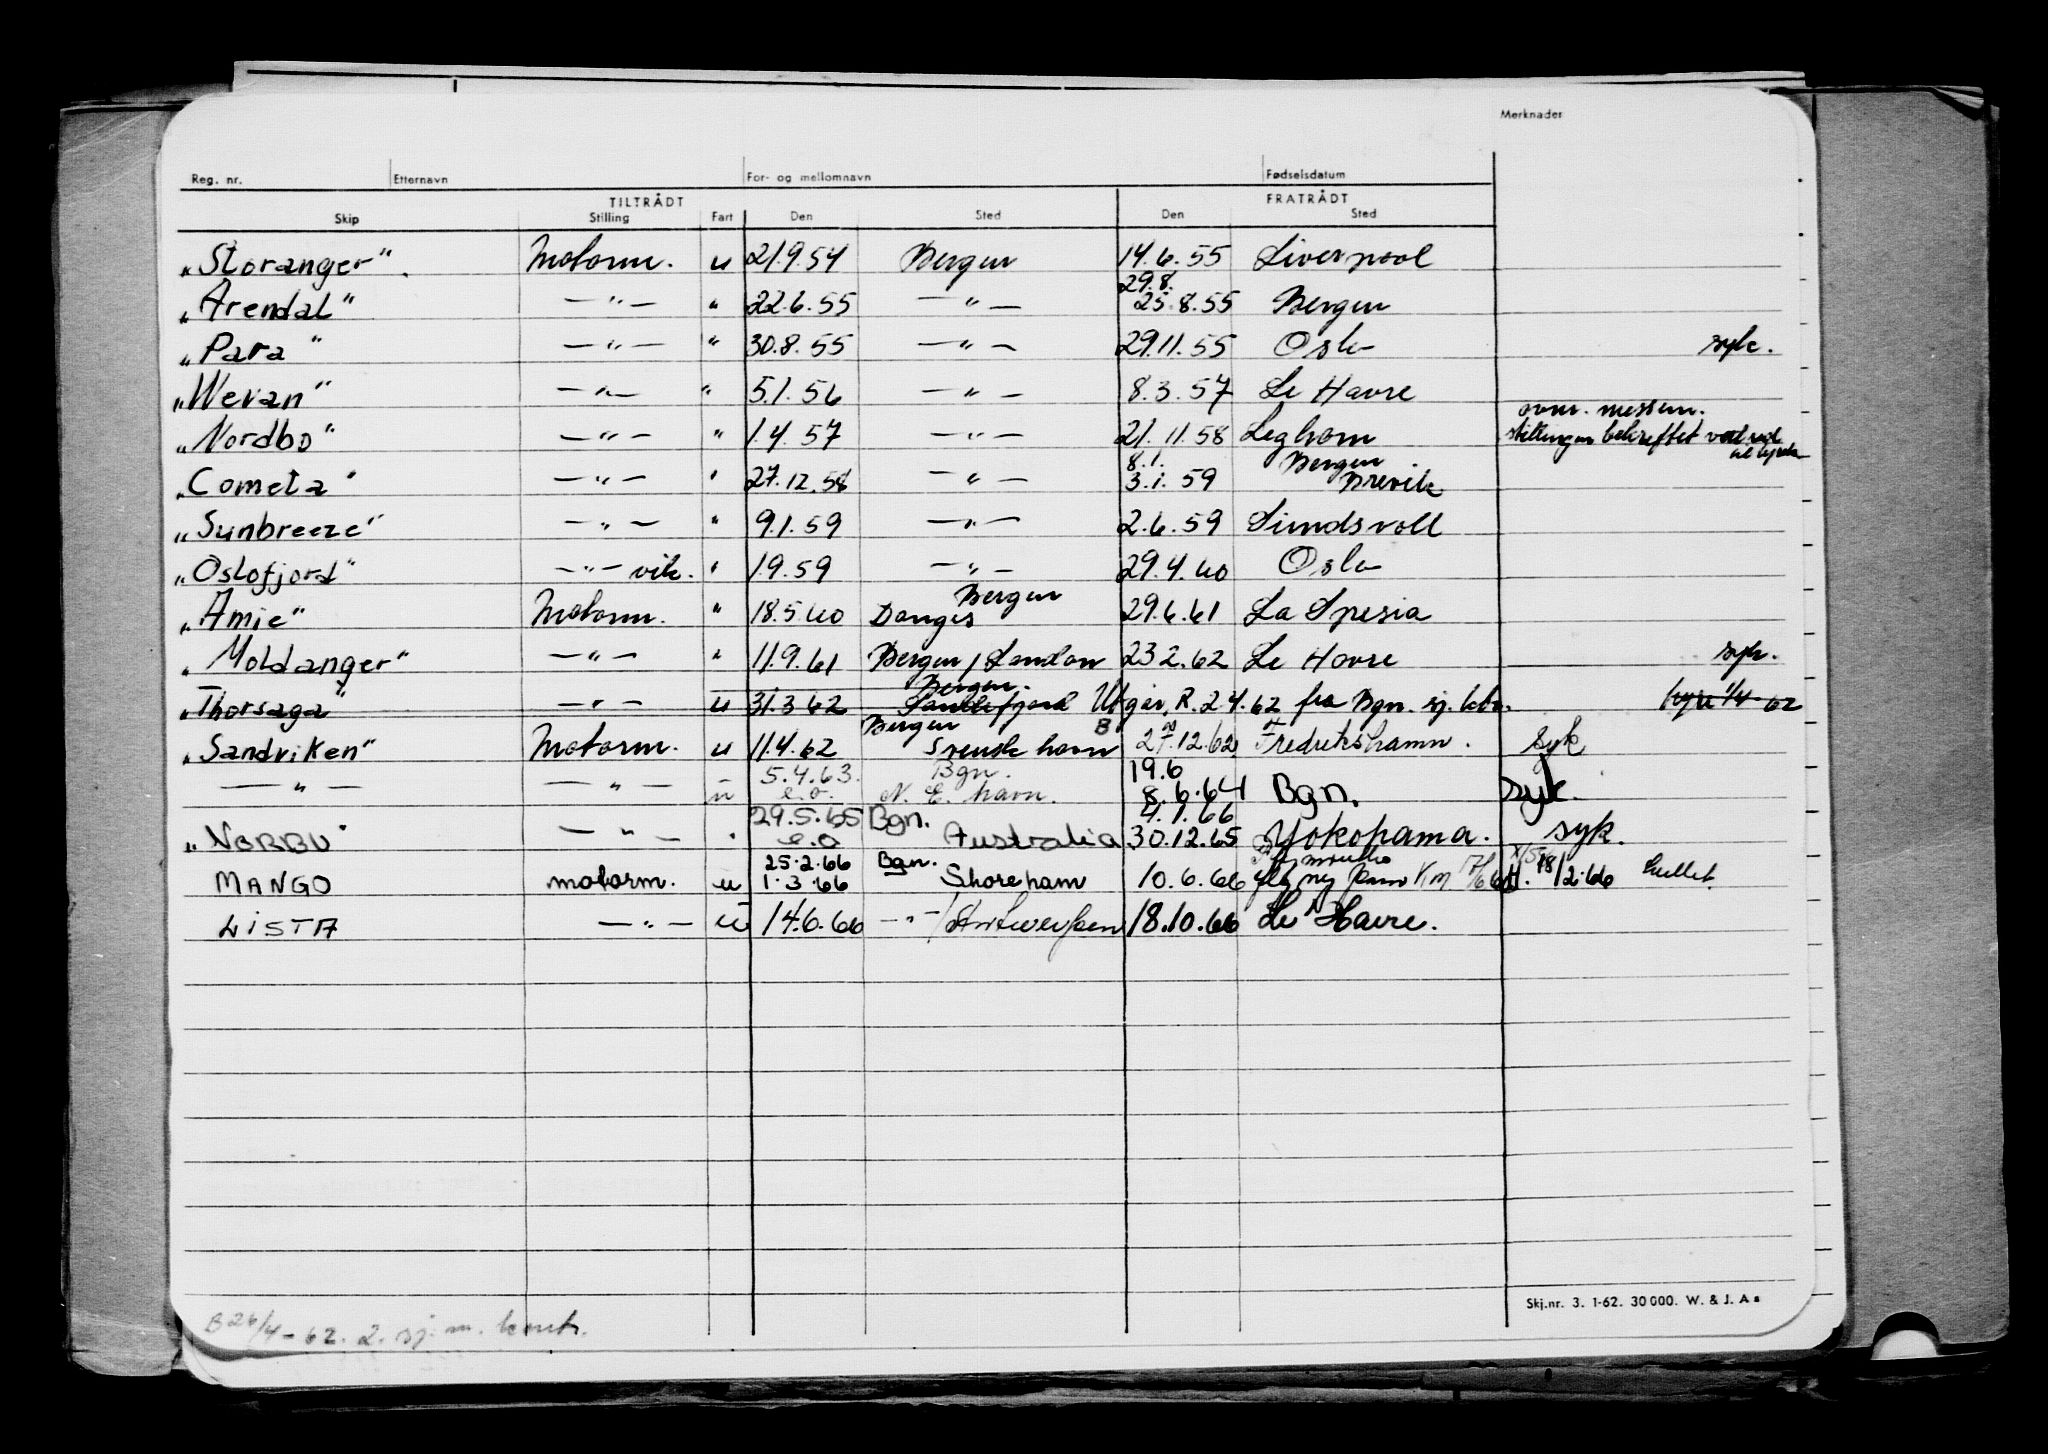 Merknader
Reg. nr. Etternavn For- og mellomnavn Fødselsdatum
TILTRÅDT FRATRÅDT
Skip Stilling Fart Den Sted Den Sted
„Storanger" Motorm. u 21.9.54 Bergen 14.6.55 Liverpool
29.8.
„Arendal" — " — " 22.6.55 — " — 25.8.55 Bergen
„Para" — " — " 30.8.55 — " — 29.11.55 Oslo syk.
„Weran" — " — " 5.1.56 — " — 8.3.57 Le Havre
ovnr. messem.
„Nordbo" — " — " 1.4.57 — " — 21.11.58 Leghorn stillingen bekreftet ved
8.1. Bergen
„Cometa" — " — " 27.12.58 — " — 3.1.59 Brevik
„Sunbreeze" — " — " 9.1.59 — " — 2.6.59 Sundsvall
„Oslofjord" — " — vik. " 1.9.59 — " — 29.4.60 Oslo
Bergen
„Amie" Motorm. " 18.5.60 Donges 29.6.61 La Spesia
„Moldanger" — " — " 11.9.61 Bergen / London 23.2.62 Le Havre syk.
Bergen.
„Thorsaga" — " — u 31.3.62 Sandefjord Utgår, R. 2.4.62 fra Bgn. sj. ktr. hyre 1/4-62
Bergen B
„Sandviken" Motorm. u 11.4.62 Svensk havn 27.12.62 Fredrikshamn. syk
5.4.63. Bgn. 19.6
— " — — " — u e.o. N. E. havn. 8.6.64 Bgn. syk.
29.5.65 Bgn. 4.1.66
„NORBU" — " — " e.o Australia 30.12.65 Yokohama. syk.
25.2.66 Bgn.
MANGO motorm. u 1.3.66 Shoreham 10.6.66 18/2.66
LISTA — " — u 14.6.66 — " — / Antwerpen 18.10.66 Le Havre.
Skj.nr. 3. 1-62. 30 000. W. & J. A s
B 26/4-62. 2. sj. m. kontr.